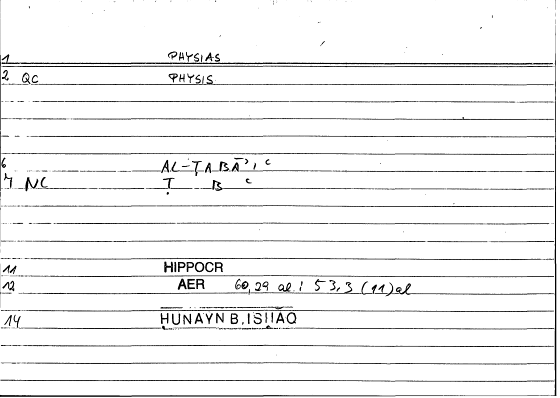 1 PHYSIAS
2 QC PHYSIS
6 AL-ṬABĀʾIʿ
7 NC Ṭ B ʿ
11 HIPPOCR
12 AER 60,29 al : 53,3 (11) al
14 ḤUNAYN B. ISḤĀQ